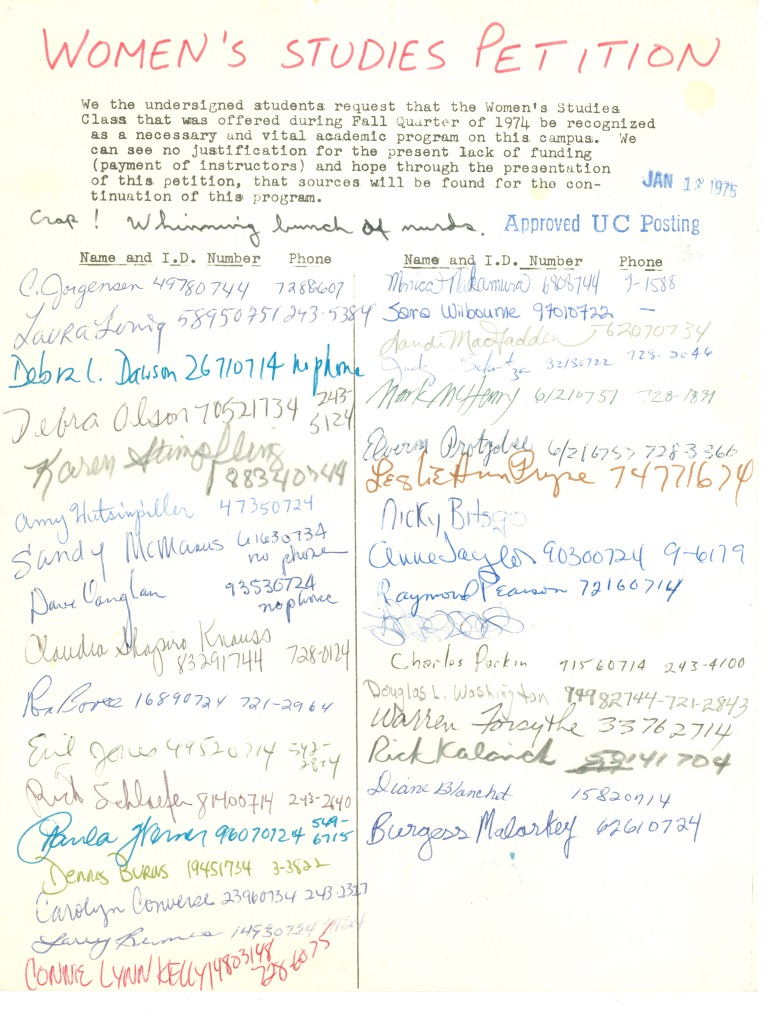 WOMEN'S STUDIES PETITION
We the undersigned students request that the Women's Studies
Class that was offered during Fall Quarter of 1974 be recognized
as a necessary and vital academic program on this campus. We
can see no justification for the present lack of funding
(payment of instructors) and hope through the presentation
of this petition, that sources will be found for the con-
tinuation of this program.
JAN 1 1975
Crap! Whinning bunch of nurds.
Approved UC Posting
Name and I.D. Number Phone
C. Jorgensen 49780744 7288607
Laura 58950751 243-5384
Debra L. Dawson 26710714 no phone
Debra Olson 70521734 243-
5124
Karen Stimpfling
88340744
Amy Hutsinpiller 47350724
Sandy McManus 61630734
no phone
Dave Vaughan 93530724
no phone
Claudia Shapiro Knauss
83291744 728-0124
16890724 721-2964
Jones 49520714 542-
Rick Schlaefer 81400714 243-2640
Paula 96070724 549-
6715
Dennis Burns 19451734 3-3822
Carolyn Converse 23960734 243-2327
Larry 14930734
CONNIE LYNN KELLY 14803148
728-6075
Name and I.D. Number Phone
Monica Nakamura 6808744 9-1588
Sara Wilbourne 97010722 —
Sandi MacFadden 562070734
Judy 32150722 728-2046
Mark McHenry 61210757 728-1831
61216757 728-3366
Leslie Ann Pryse 74771674
Nicky Bitsgo
Anne Taylor 90300724 9-6179
Raymond Pearson 72160714
Charles Parkin 71560714 243-4100
Douglas L. Washington 74982744-721-2843
Warren Forsythe 33762714
Rick Kalanick 141704
Diane Blanchet 15820714
Burgess Malarkey 62610724